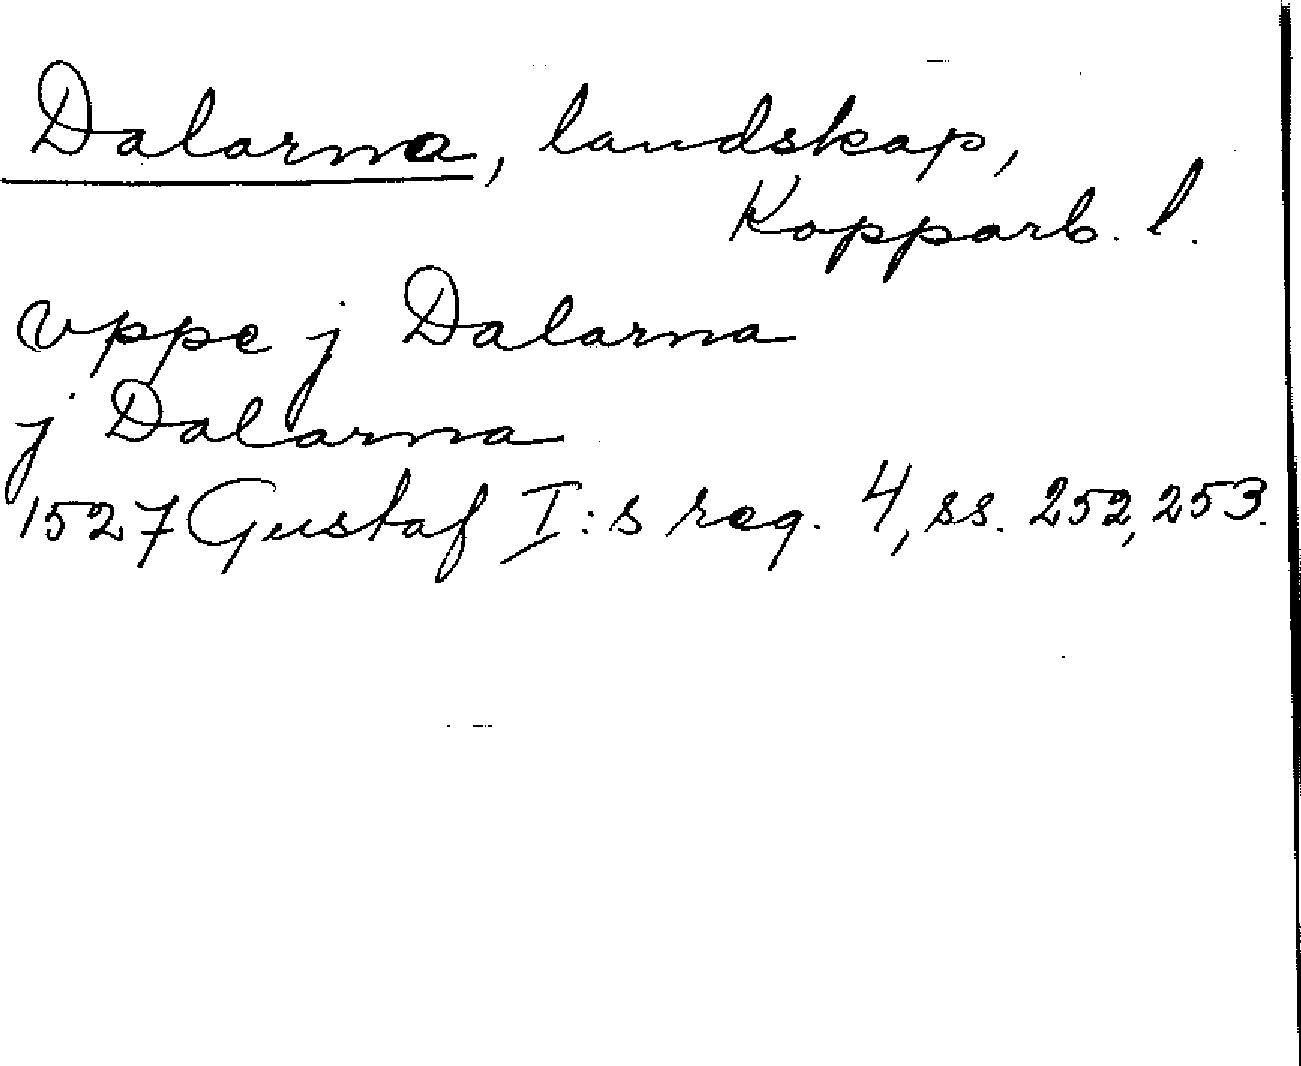 Dalarna, landskap,
Kopparb. l.
vppe j Dalarna
j Dalarna
1527 Gustaf I:s reg. 4, ss. 252, 253.